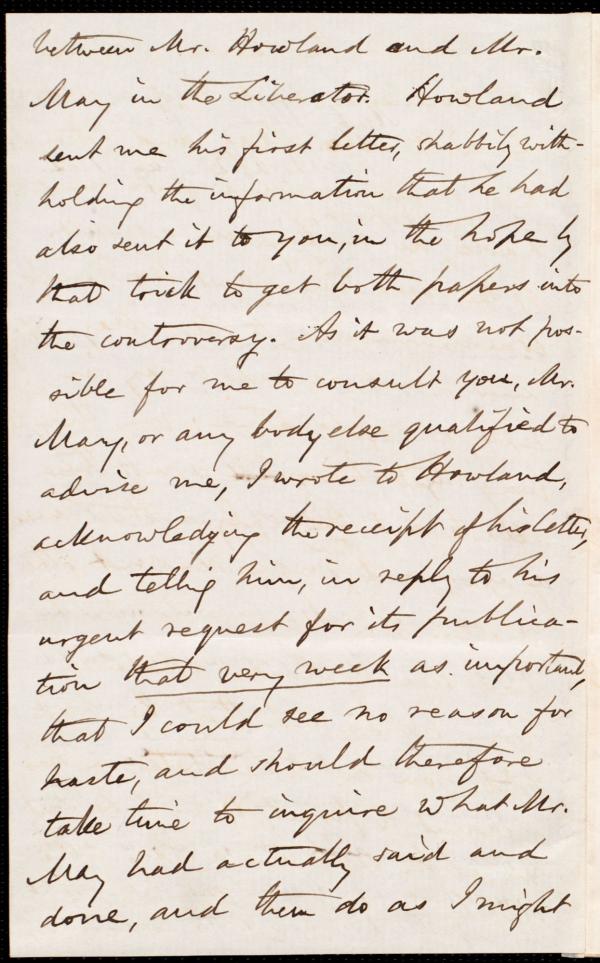 between Mr. Howland and Mr.
May in the Liberator. Howland
sent me his first letter, shabbily with-
holding the information that he had
also sent it to you, in the hope by
that trick to get both papers into
the controversy. As it was not pos-
sible for me to consult you, Mr.
May, or any body else qualified to
advise me, I wrote to Howland,
acknowledging the receipt of his letter,
and telling him, in reply to his
urgent request for its publica-
tion that very week as important,
that I could see no reason for
haste, and should therefore
take time to inquire what Mr.
May had actually said and
done, and then do as I might